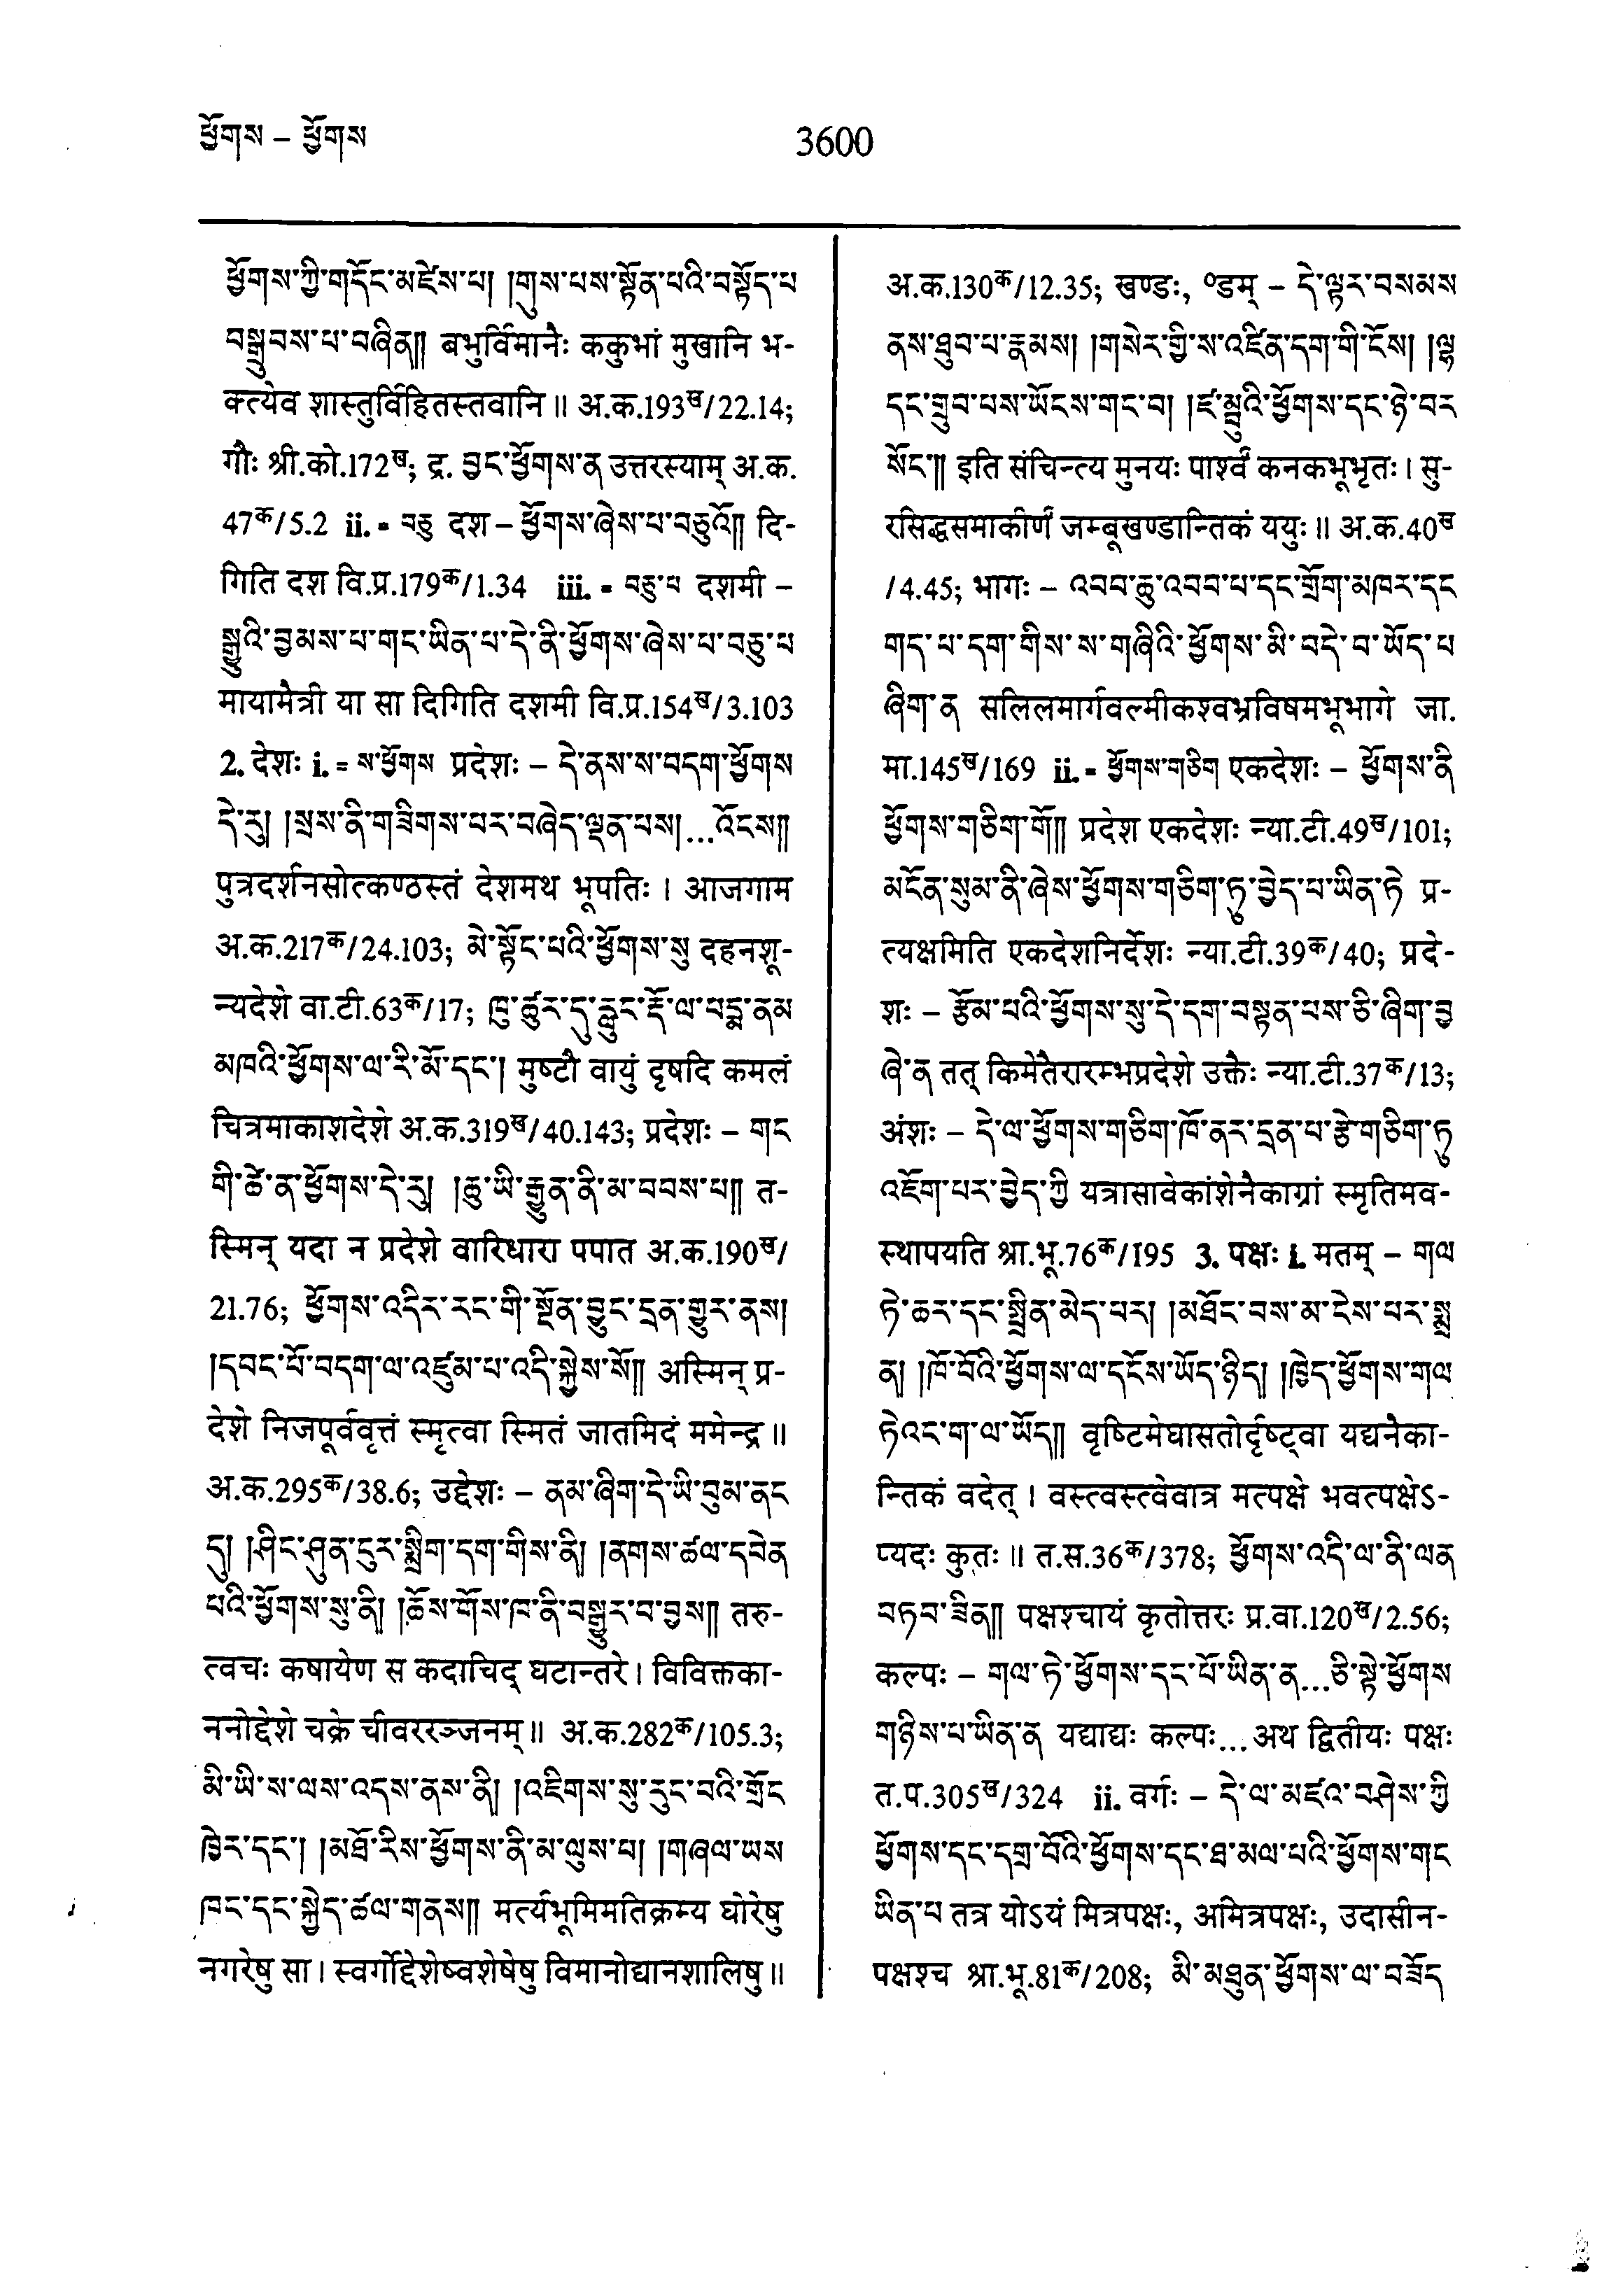 ཕྱོགས – ཕྱོགས
3600
ཕྱོགས་ཀྱི་གདོང་མཛེས་པ། །གུས་པས་སྟོན་པའི་བསྟོད་པ
བསྒྲུབས་པ་བཞིན།། बभुर्विमानैः ककुभां मुखानि भ-
क्त्येव शास्तुर्विहितस्तवानि ॥ अ.क.193ख/22.14;
गौः श्री.को.172ख; द्र. བྱང་ཕྱོགས་ན उत्तरस्याम् अ.क.
47क/5.2 ii. = བཅུ दश – ཕྱོགས་ཞེས་པ་བཅུའོ།། दि-
गिति दश वि.प्र.179क/1.34 iii. = བཅུ་པ दशमी –
སྒྱུའི་བྱམས་པ་གང་ཡིན་པ་དེ་ནི་ཕྱོགས་ཞེས་པ་བཅུ་པ
मायामैत्री या सा दिगिति दशमी वि.प्र.154ख/3.103
2. देशः i. = ས་ཕྱོགས प्रदेशः – དེ་ནས་ས་བདག་ཕྱོགས
དེ་རུ། །སྲས་ནི་གཟིགས་པར་བཞེད་ལྡན་པས།...འོངས།།
पुत्रदर्शनसोत्कण्ठस्तं देशमथ भूपतिः । आजगाम
अ.क.217क/24.103; མེ་སྟོང་པའི་ཕྱོགས་སུ दहनशू-
न्यदेशे वा.टी.63क/17; ཁུ་ཚུར་དུ་རླུང་རྡོ་ལ་པདྨ་ནམ
མཁའི་ཕྱོགས་ལ་རི་མོ་དང་། मुष्टौ वायुं दृषदि कमलं
चित्रमाकाशदेशे अ.क.319ख/40.143; प्रदेशः – གང
གི་ཚེ་ན་ཕྱོགས་དེ་རུ། །ཆུ་ཡི་རྒྱུན་ནི་མ་བབས་པ།། त-
स्मिन् यदा न प्रदेशे वारिधारा पपात अ.क.190ख/
21.76; ཕྱོགས་འདིར་རང་གི་སྔོན་བྱུང་དྲན་གྱུར་ནས།
།དབང་པོ་བདག་ལ་འཛུམ་པ་འདི་སྐྱེས་སོ།། अस्मिन् प्र-
देशे निजपूर्ववृत्तं स्मृत्वा स्मितं जातमिदं ममेन्द्र ॥
अ.क.295क/38.6; उद्देशः – ནམ་ཞིག་དེ་ཡི་བུམ་ནང
དུ། །ཤིང་ཤུན་ངུར་སྨྲིག་དག་གིས་ནི། །ནགས་ཚལ་དབེན
པའི་ཕྱོགས་སུ་ནི། །ཆོས་གོས་ཁ་ནི་བསྒྱུར་བ་བྱས།། तरु-
त्वचः कषायेण स कदाचिद् घटान्तरे । विविक्तका-
ननोद्देशे चक्रे चीवररञ्जनम् ॥ अ.क.282क/105.3;
མི་ཡི་ས་ལས་འདས་ནས་ནི། །འཇིགས་སུ་རུང་བའི་གྲོང
ཁྱེར་དང་། །མཐོ་རིས་ཕྱོགས་ནི་མ་ལུས་པ། །གཞལ་ཡས
ཁང་དང་སྐྱེད་ཚལ་གནས།། मर्त्यभूमिमतिक्रम्य घोरेषु
नगरेषु सा । स्वर्गोद्देशेष्वशेषेषु विमानोद्यानशालिषु ॥
अ.क.130क/12.35; खण्डः, ०डम् – དེ་ལྟར་བསམས
ནས་ཐུབ་པ་རྣམས། །གསེར་གྱི་ས་འཛིན་དག་གི་ངོས། །ལྷ
དང་གྲུབ་པས་ཡོངས་གང་བ། །ཛ་མྦུའི་ཕྱོགས་དང་ཉེ་བར
སོང་།། इति संचिन्त्य मुनयः पार्श्वं कनकभूभृतः । सु-
रसिद्धसमाकीर्णं जम्बूखण्डान्तिकं ययुः ॥ अ.क.40ख
/4.45; भागः – འབབ་ཆུ་འབབ་པ་དང་གྲོག་མཁར་དང
གད་པ་དག་གིས་ས་གཞིའི་ཕྱོགས་མི་བདེ་བ་ཡོད་པ
ཞིག་ན सलिलमार्गवल्मीकश्वभ्रविषमभूभागे जा.
मा.145ख/169 ii. = ཕྱོགས་གཅིག एकदेशः – ཕྱོགས་ནི
ཕྱོགས་གཅིག་གོ།། प्रदेश एकदेशः न्या.टी.49ख/101;
མངོན་སུམ་ནི་ཞེས་ཕྱོགས་གཅིག་ཏུ་བྱེད་པ་ཡིན་ཏེ प्र-
त्यक्षमिति एकदेशनिर्देशः न्या.टी.39क/40; प्रदे-
शः – རྩོམ་པའི་ཕྱོགས་སུ་དེ་དག་བསྟན་པས་ཅི་ཞིག་བྱ
ཞེ་ན तत् किमेतैरारम्भप्रदेशे उक्तैः न्या.टी.37क/13;
अंशः – དེ་ལ་ཕྱོགས་གཅིག་ཁོ་ནར་དྲན་པ་རྩེ་གཅིག་ཏུ
འཇོག་པར་བྱེད་ཀྱི यत्रासावेकांशेनैकाग्रां स्मृतिमव-
स्थापयति श्रा.भू.76क/195 3. पक्षः i. मतम् – གལ
ཏེ་ཆར་དང་སྤྲིན་མེད་པར། །མཐོང་བས་མ་ངེས་པར་སྨྲ
ན། །ཁོ་བོའི་ཕྱོགས་ལ་དངོས་ཡོད་ཉིད། །ཁྱེད་ཕྱོགས་གལ
ཏེའང་ག་ལ་ཡོད།། वृष्टिमेघासतोर्दृष्ट्वा यद्यनैका-
न्तिकं वदेत् । वस्त्वस्त्वेवात्र मत्पक्षे भवत्पक्षेऽ-
प्यदः कुतः ॥ त.स.36क/378; ཕྱོགས་འདི་ལ་ནི་ལན
བཏབ་ཟིན།། पक्षश्चायं कृतोत्तरः प्र.वा.120ख/2.56;
कल्पः – གལ་ཏེ་ཕྱོགས་དང་པོ་ཡིན་ན...ཅི་སྟེ་ཕྱོགས
གཉིས་པ་ཡིན་ན यद्याद्यः कल्पः...अथ द्वितीयः पक्षः
त.प.305ख/324 ii. वर्गः – དེ་ལ་མཛའ་བཤེས་ཀྱི
ཕྱོགས་དང་དགྲ་བོའི་ཕྱོགས་དང་ཐ་མལ་པའི་ཕྱོགས་གང
ཡིན་པ तत्र योऽयं मित्रपक्षः, अमित्रपक्षः, उदासीन-
पक्षश्च श्रा.भू.81क/208; མི་མཐུན་ཕྱོགས་ལ་བཟོད